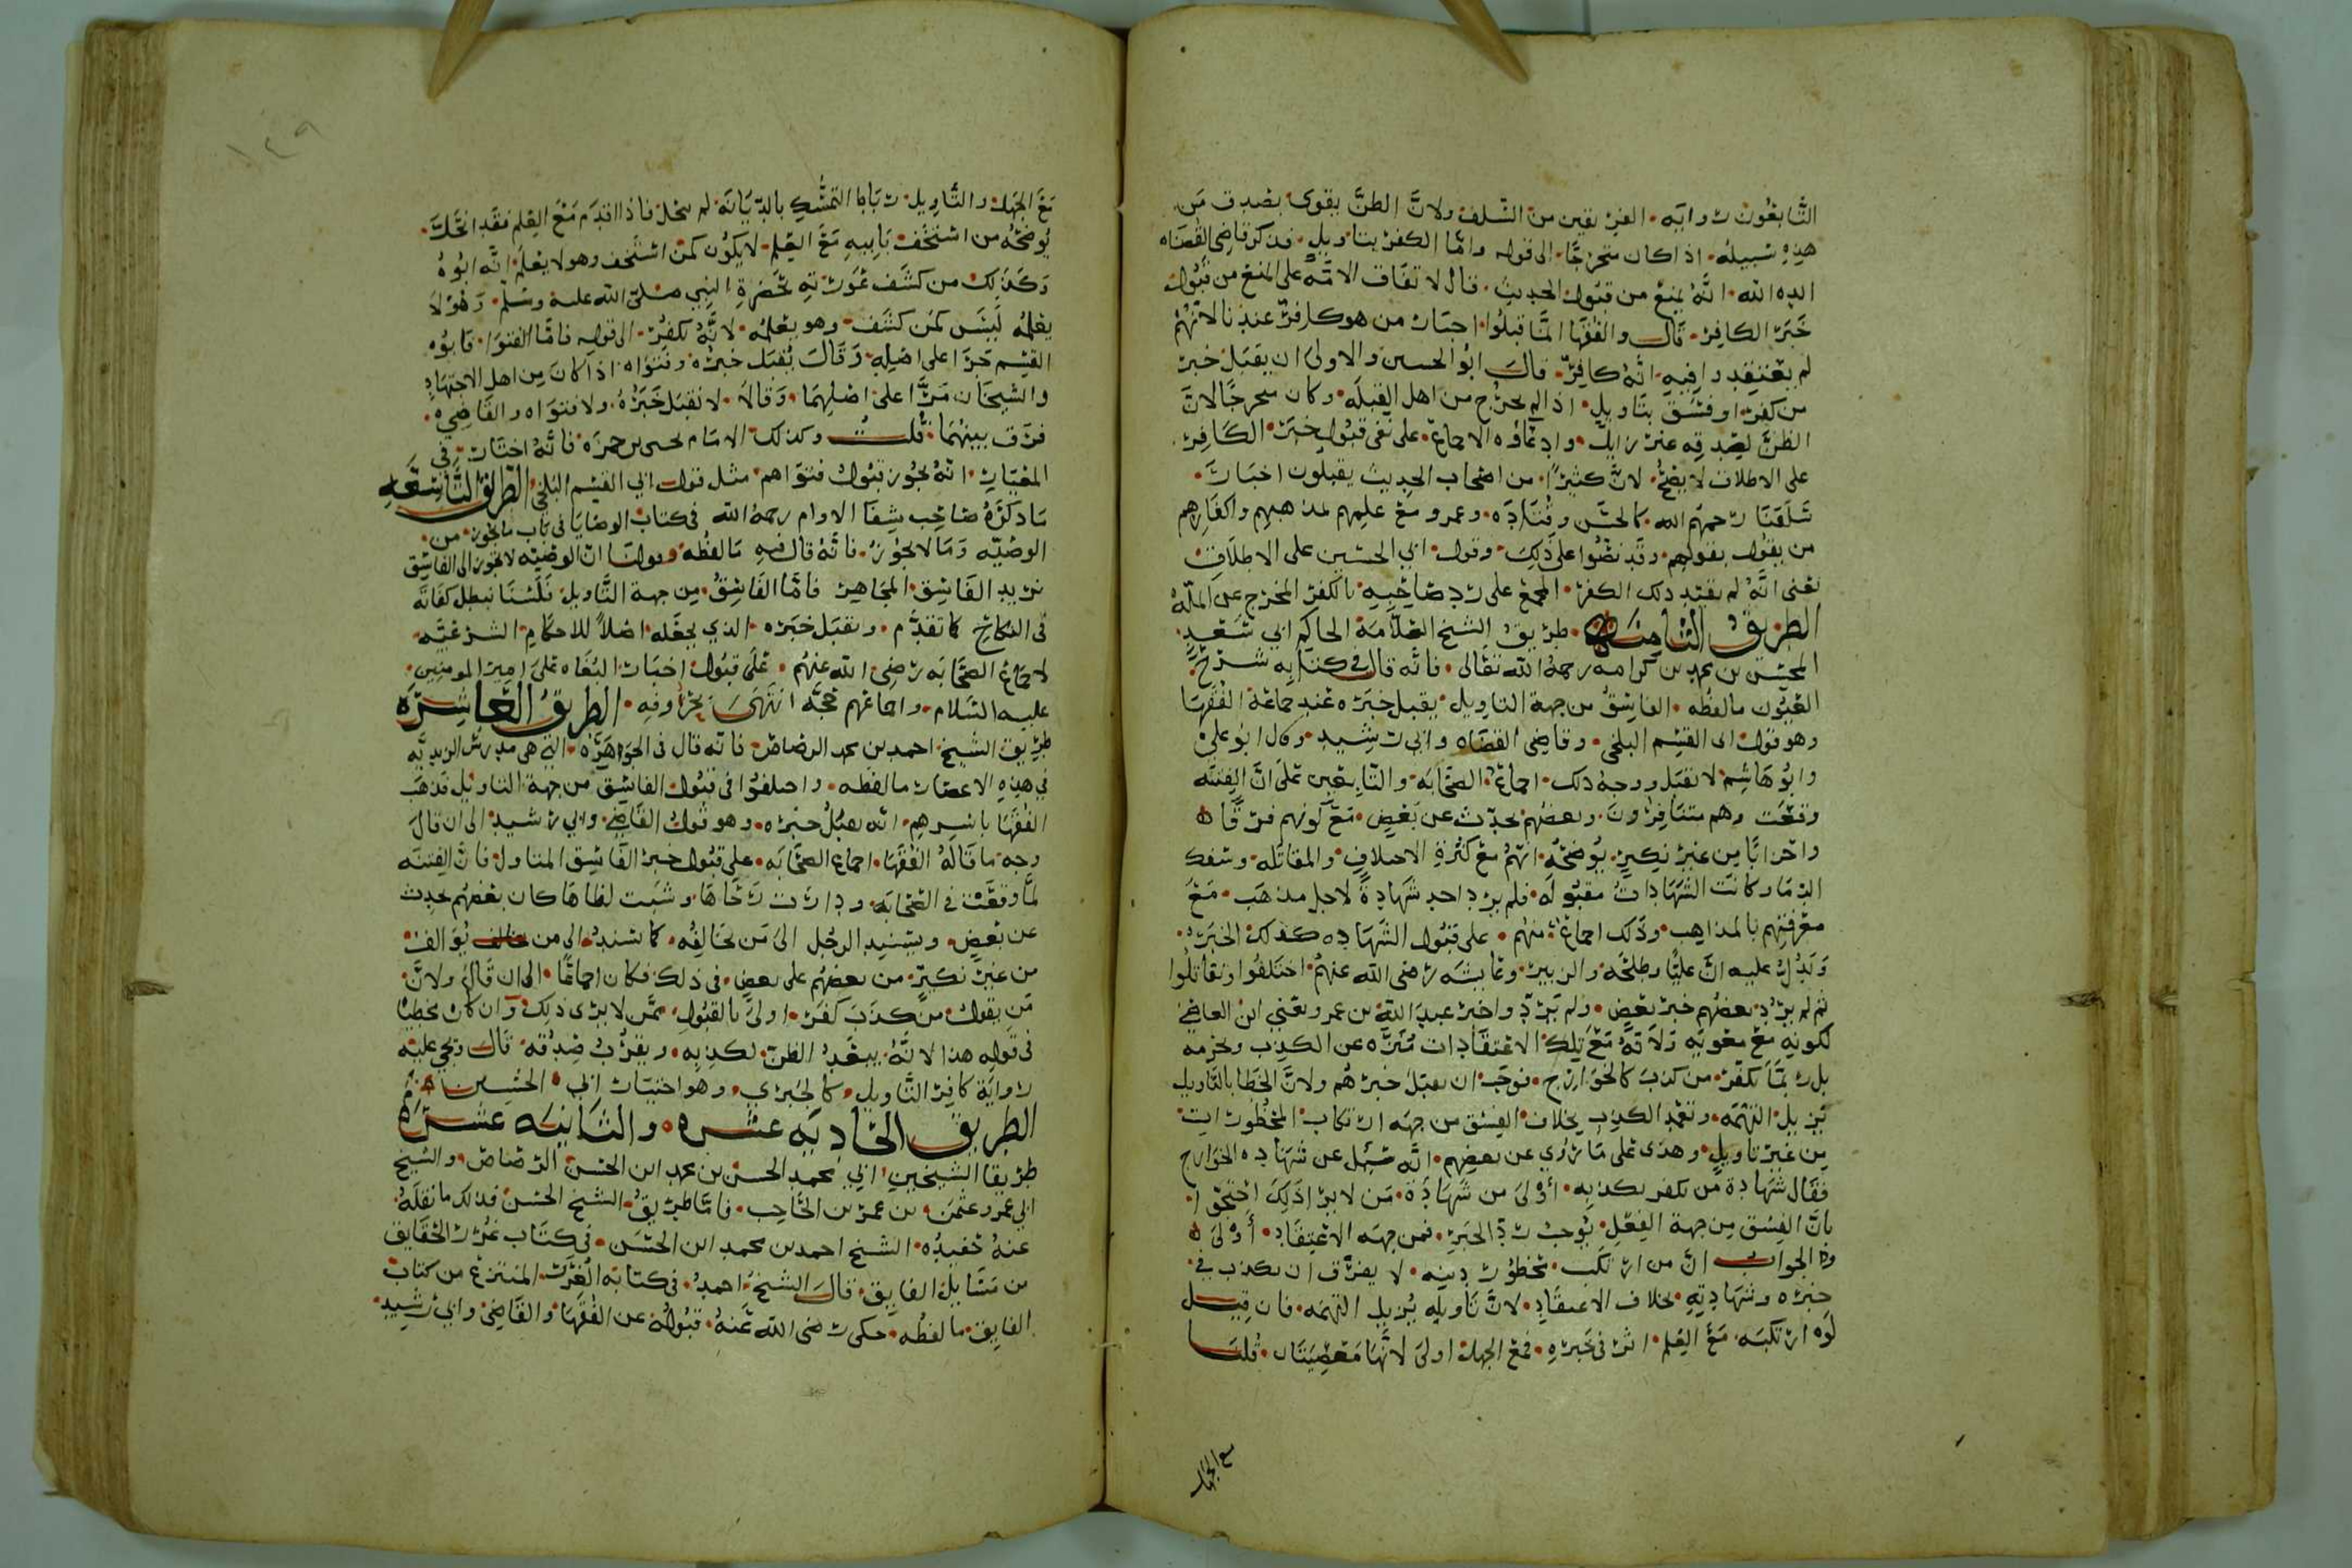 التابعون روايه الفريقين من السلف ولان الظن يقوى بصدق من
هذه سبيله اذا كان متحرجا الى قوله واما الكفر بتاويل فذكر قاضي القضاه
ايده الله انه يمنع من قبول الحديث قال لاتفاق الامه على المنع من قبول
خبر الكافر قال والفقها انما قبلوا اخبار من هو كافر عندنا لانهم
لم يعتقدوا فيه انه كافر قال ابو الحسين والاولى ان يقبل خبر
من كفر او فسق بتاويل اذا لم يخرج من اهل القبله وكان متحرجا لان
الظن لصدقه غير زايل وادعاوه الاجماع على نفي قبول خبر الكافر
على الاطلاق لا يصح لان كثيرا من اصحاب الحديث يقبلون اخبار
سلفنا رحمهم الله كالحسن وقتاده وعمرو مع علمهم بمذهبهم واكفارهم
من يقول بقولهم وقد نصوا على ذلك وقول ابي الحسين على الاطلاق
يعني انه لم يقيد ذلك الكفر المجمع على رد صاحبه بالكفر المخرج عن المله
الطريق الثامنه طريق الشيخ العلامة الحاكم ابي سعد
المحسن بن محمد بن كرامه رحمه الله تعالى فانه قال في كتابه شرح
العيون ما لفظه الفاسق من جهة التاويل يقبل خبره عند جماعة الفقها
وهو قول ابي القسم البلخي وقاضي القضاه وابي رشيد وقال ابو علي
وابو هاشم لا يقبل ووجه ذلك اجماع الصحابه والتابعين على ان الفتنه
وقعت وهم متنافرون وبعضهم يحدث عن بعض مع كونهم فرقا
واحزابا من غير نكير يوضحه انهم مع كثرة الاختلاف والمقاتله وسفك
الدما وكانت الشهادات مقبوله فلم يرد احد شهادة لاجل مذهب مع
معرفتهم بالمذاهب وذلك اجماع منهم على قبول الشهاده كذلك الخبر
ويدل عليه ان عليا وطلحه والزبير وعايشه رضي الله عنهم اختلفوا وتقاتلوا
ثم لم يرد بعضهم خبر بعض ولم يرد واخبر عبد الله بن عمرو يعني ابن العاص
لكونه مع معويه ولانه مع تلك الاعتقادات منزه عن الكذب وتحرمه
بل ربما يكفر من كذب كالخوارج فوجب ان يقبل خبرهم ولان الخطا بالتاويل
يزيل التهمه وتعمد الكذب بخلاف الفسق من جهه ارتكاب المحظورات
من غير تاويل وهذى على ما روي عن بعضهم انه سئل عن شهاده الخوارج
فقال شهادة من يكفر بكذبه اولى من شهادة من لا يرا ذلك احتجوا
بان الفسق من جهة الفعل يوجب رد الخبر فمن جهه الاعتقاد اولى
والجواب ان من ارتكب محظور دينه لا يفرق ان يكذب في
خبره وشهادته بخلاف الاعتقاد لان تاويله يزيل التهمه فان قيل
لو ارتكبه مع العلم اثر في خبره فمع الجهل اولى لانهما معصيتان قلنا
مع الجهل
١٤٩
مع الجهل والتاويل ربابا التمسك بالديانه لم يخل فاذا اقدم مع العلم فقد اخل
يوضحه من استخف بابيه مع العلم لا يكون كمن استخف وهو لا يعلم انه ابوه
وكذلك من كشف عورته بحضرة النبي صلى الله عليه وسلم وهو لا
يعلمه ليس كمن كشف وهو يعلمه لانه يكفر الى قوله فاما الفتوا فابو
القسم جرا على اصله وقال يقبل خبره وفتواه اذا كان من اهل الاجتهاد
والشيخان مرا على اصلهما وقالا لا نقبل خبره ولا فتواه والقاضي
فرق بينهما قلت وكذلك الامام يحيى بن حمزه فانه اختار في
المعيار انه يجوز قبول فتواهم مثل قول ابي القسم البلخي الطريق التاسعه
ما ذكره صاحب شفا الاوام رحمه الله في كتاب الوصايا في باب ما يجوز من
الوصيه وما لا يجوز فانه قال فيه ما لفظه وقولنا ان الوصيه لا تجوز الى الفاسق
نريد الفاسق المجاهر فاما الفاسق من جهة التاويل فلسنا نبطل كفاته
في النكاح كما تقدم ونقبل خبره الذي يجعله اصلا للاحكام الشرعيه
لاجماع الصحابه رضي الله عنهم على قبول اخبار البغاه على امير المومنين
عليه السلام واجماعهم حجه انتهى بحروفه الطريق العاشره
طريق الشيخ احمد بن محمد الرصاص فانه قال في الجوهره التي هي مدرس الزيديه
في هذه الاعصار ما لفظه واختلفوا في قبول الفاسق من جهة التاويل فذهب
الفقها باسرهم انه يقبل خبره وهو قول القاضي وابي رشيد الى ان قال
وجه ما قاله الفقها اجماع الصحابه على قبول خبر الفاسق المتاول فان الفتنه
لما وقعت في الصحابه ودارت رحاها وشبت لظاها كان بعضهم يحدث
عن بعض ويسند الرجل الى من يخالفه كما يسند الى من يوالف
من غير نكير من بعضهم على بعض في ذلك فكان اجماعا الى ان قال ولان
من يقول من كذب كفر اولى بالقبول ممن لا يرى ذلك وان كان مخطيا
في قوله هذا لانه يبعد الظن لكذبه ويقرب صدقه قال ويجي عليه
رواية كافر التاويل كالجبري وهو اختيار ابي الحسين
الطريق الحاديه عشره والثانيه عشره
طريقا الشيخين ابي محمد الحسن بن محمد ابن الحسن الرصاص والشيخ
ابي عمرو عثمن بن عمر بن الحاجب فاما طريق الشيخ الحسن فذلك ما نقله
عنه حفيده الشيخ احمد بن محمد ابن الحسن في كتاب غرر الحقايق
من مسايل الفايق قال الشيخ احمد في كتابه الغرر المنتزع من كتاب
الفايق ما لفظه حكى رضي الله عنه قبوله عن الفقها والقاضي وابي رشيد